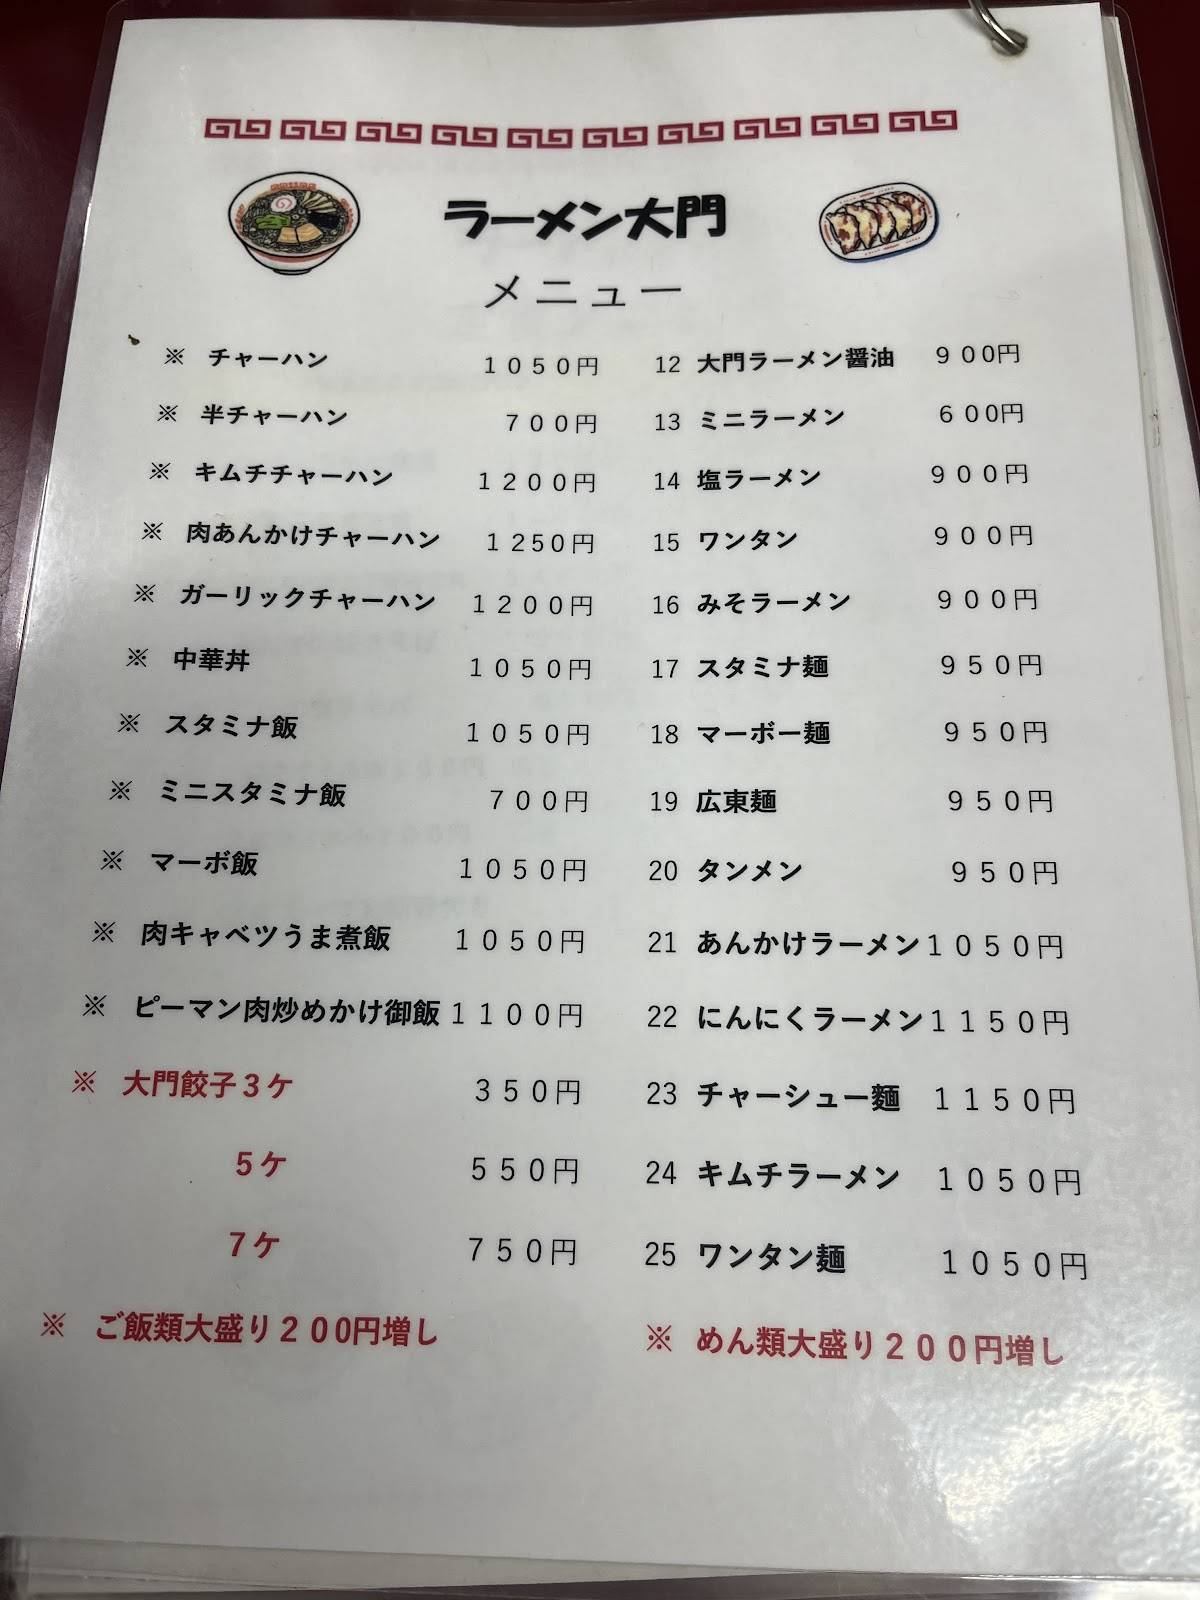 ラーメン大門
メニュー
※ チャーハン 1050円
※ 半チャーハン 700円
※ キムチチャーハン 1200円
※ 肉あんかけチャーハン 1250円
※ ガーリックチャーハン 1200円
※ 中華丼 1050円
※ スタミナ飯 1050円
※ ミニスタミナ飯 700円
※ マーボ飯 1050円
※ 肉キャベツうま煮飯 1050円
※ ピーマン肉炒めかけ御飯 1100円
※ 大門餃子3ケ 350円
5ケ 550円
7ケ 750円
※ ご飯類大盛り200円増し
12 大門ラーメン醤油 900円
13 ミニラーメン 600円
14 塩ラーメン 900円
15 ワンタン 900円
16 みそラーメン 900円
17 スタミナ麺 950円
18 マーボー麺 950円
19 広東麺 950円
20 タンメン 950円
21 あんかけラーメン 1050円
22 にんにくラーメン 1150円
23 チャーシュー麺 1150円
24 キムチラーメン 1050円
25 ワンタン麺 1050円
※ めん類大盛り200円増し